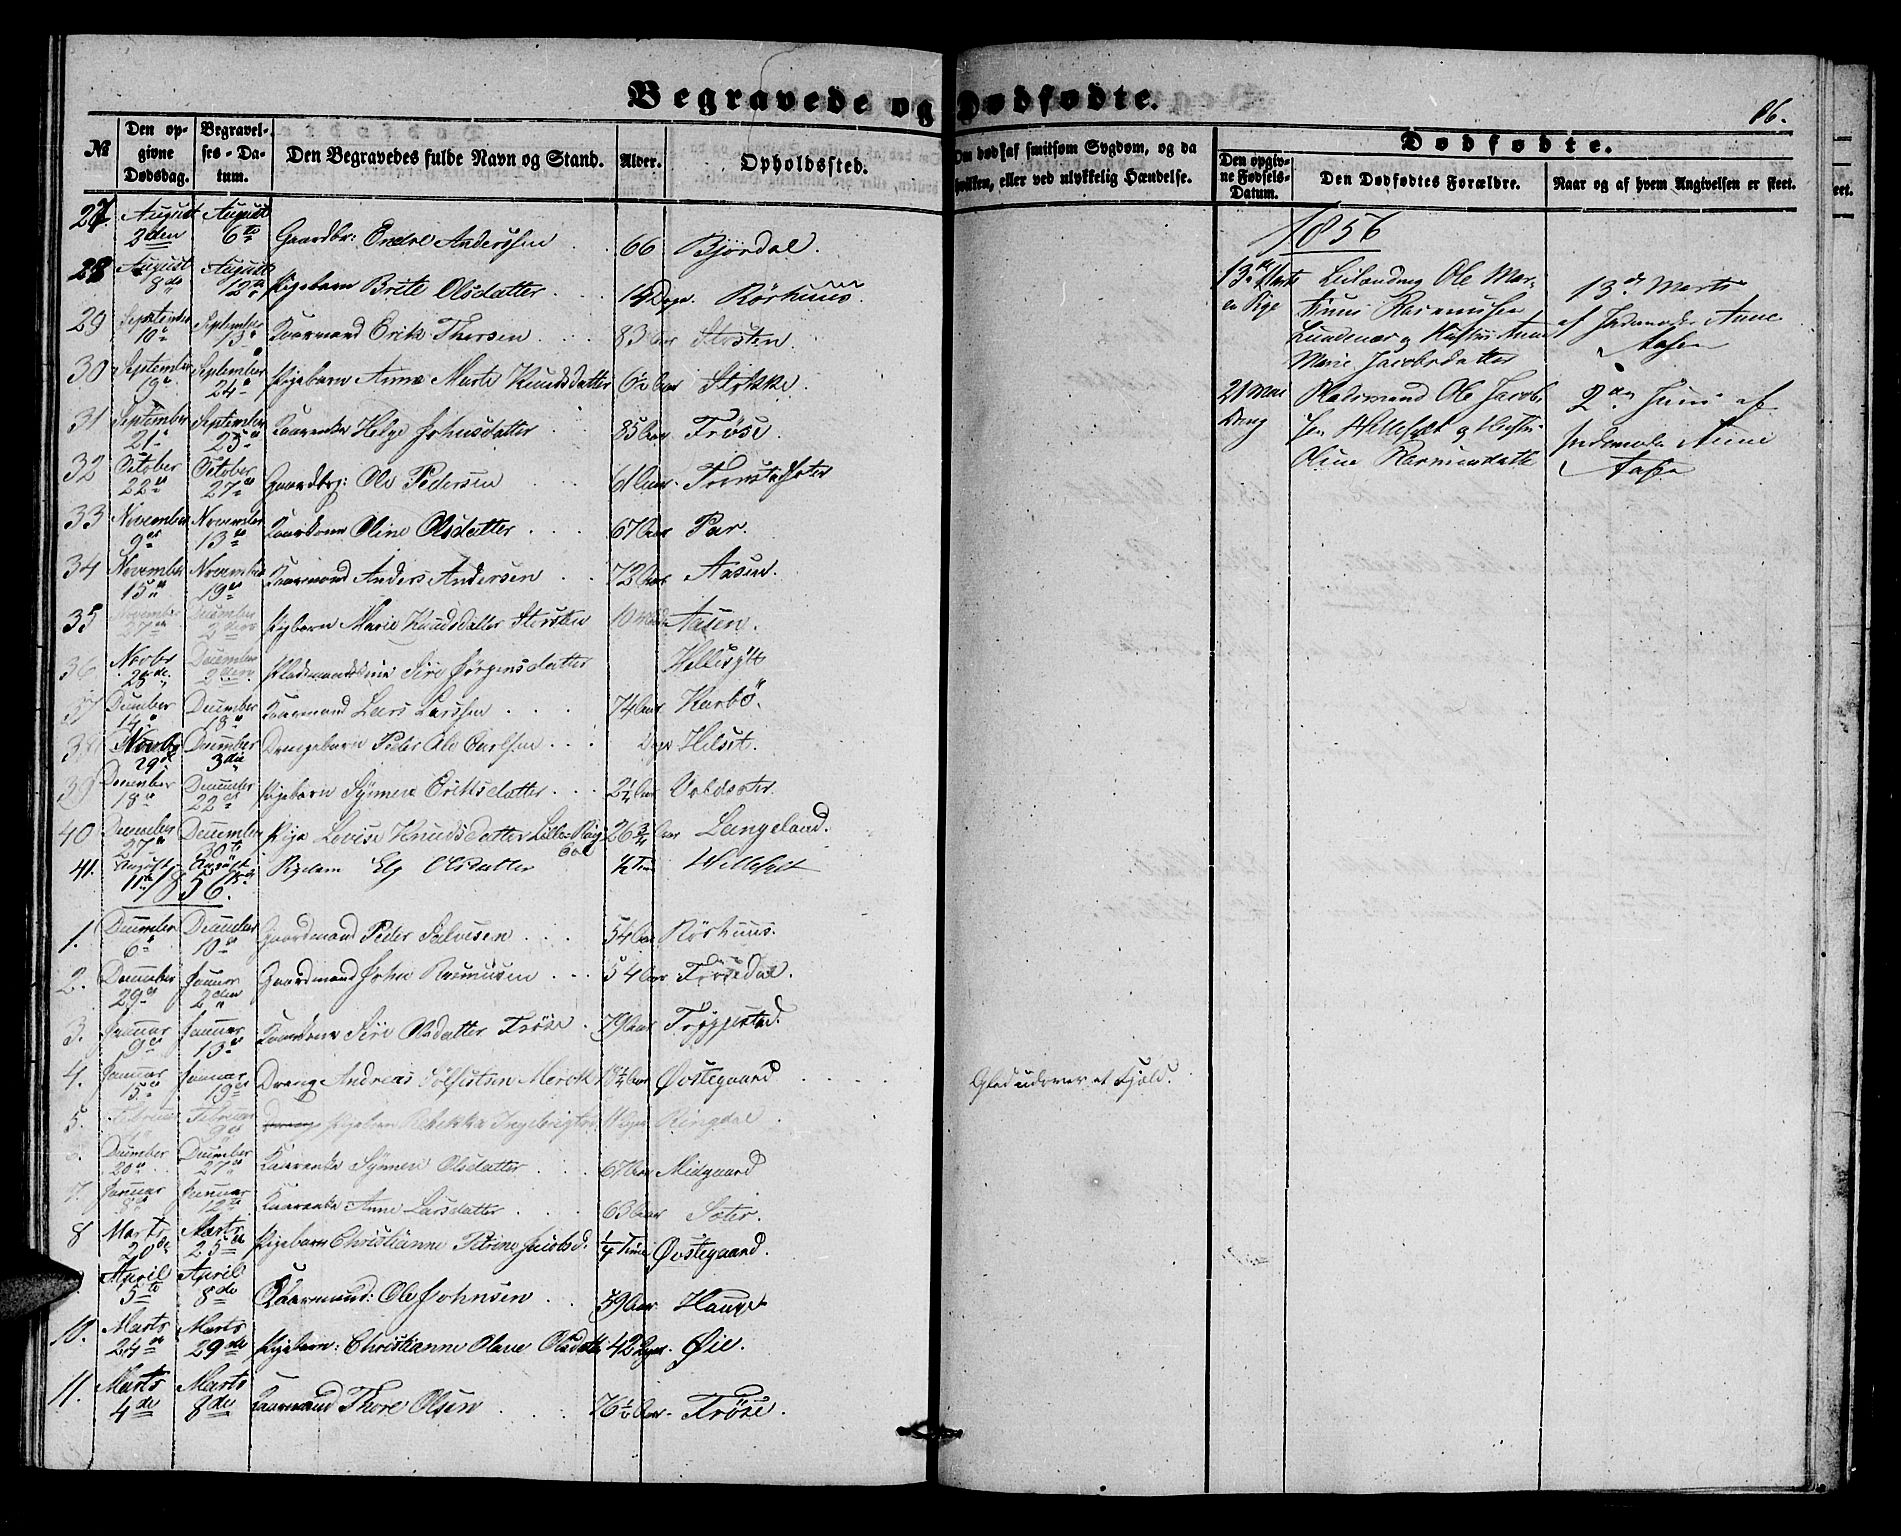 Begravede og Dødfødte.
86.
№ Den opgivne Dødsdag. Begravelses-Datum. Den Begravedes fulde Navn og Stand. Alder. Opholdssted. Om død af smitsom Sygdom, og da hvilken, eller ved ulykkelig Hændelse. Dødfødte. Den opgivne Fødsels-Datum. Den Dødfødtes Forældre. Naar og af hvem Angivelsen er skeet.
27. August 2den August 6te Gaardbr: Endre Anderssen 66 Bjørdal.
28 August 8de August 12te Pigebarn Brite Olsdatter 14 Dage. Rørhuus.
29 September 10de September 13de Kaarmand Erik Thorsen 83 Aar Stosten.
30 September 19de September 24de Pigebarn Anne Marte Knudsdatter 6½ Aar Stokke.
31 September 21de September 25de Kaarenke Helge Johnsdatter 85 Aar Frøse.
32 October 22de October 27de Gaardbrg: Ole Pedersen 61 Aar.
33 November 9de November 13de Kaarkone Oline Olsdatter 67 Aar Par.
34 November 15de November 19de Kaarmand Anders Andersen 72 Aar Aasen.
35 November 27de December 2den Pigbarn Marie Knudsdatter Storsten Aasen.
36 Novbr 25de December 2den Pladsmandskone Siri Jørgensdatter Hellesylt
37 December 14de December 18de Kaarmand Lars Larssen 74 Aar Karbø.
38 Novbr 29de December 3die Drengebarn Peder Ole Carlsen Dage Helset.
39 December 18de December 22de Pigebarn Synnen Eriksdatter 2¼ Aar Voldsæter.
40 December 27de December 30te Pige Lovise Knudsdatter Lille 26¾ Aar Langeland.
41. August 11te August Pigebarn Olsdatter ½ Time
1856.
1. December 6te December 10de Gaardmand Peder Salvesen 54 Aar Rørhuus.
2. December 29de Januar 2den Gaardmand John Rasmusen 54 Aar Frøsedal.
3. Januar 9de Januar 13de Kaarkone Siri Olsdatter Frøse. 79 Aar Trøggestad.
4. Januar 15de Januar 19de Dreng Andreas Merok 18¼ Aar Øvstegaard Gled udover et Fjæld.
5. Februar Februar 9de Pigebarn Rebekka Ingebrigtsd Dage Ringdal
December 20de December 27de Kaarenke Synnen Olsdatter 67 Aar Midgaard
7. Januar 8de Januar 12te Kaarenke Anne Larsdatter 63 Aar Sæter.
8 Marts 20de Marts 25de Pigebarn Christianne Petrine Jacobsd. ¼ Time Øvstegaard.
April 5te April 8de Kaarmand: Ole Johnsen 59 Aar. Hauge
10. Marts 24de Marts 29de Pigebarn: Christianne Olave Olsdatt. 42 Dage. Øie.
11. Marts 4de Marts 8de Kaarmand Thore Olsen 76½ Aar. Frøse.
1856
13de Marts en Pige Leilænding Ole Martinus Rasmussen og Hustru Anne Marie Jacobsdatter 13de Marts af Jordemoder Anne Aasen
21 Mai Dreng Pladsmand Ole Jacobsen Hellesylt og Hustru Oline Rasmusdatt 2den Juni af Jordemoder Anne Aasen